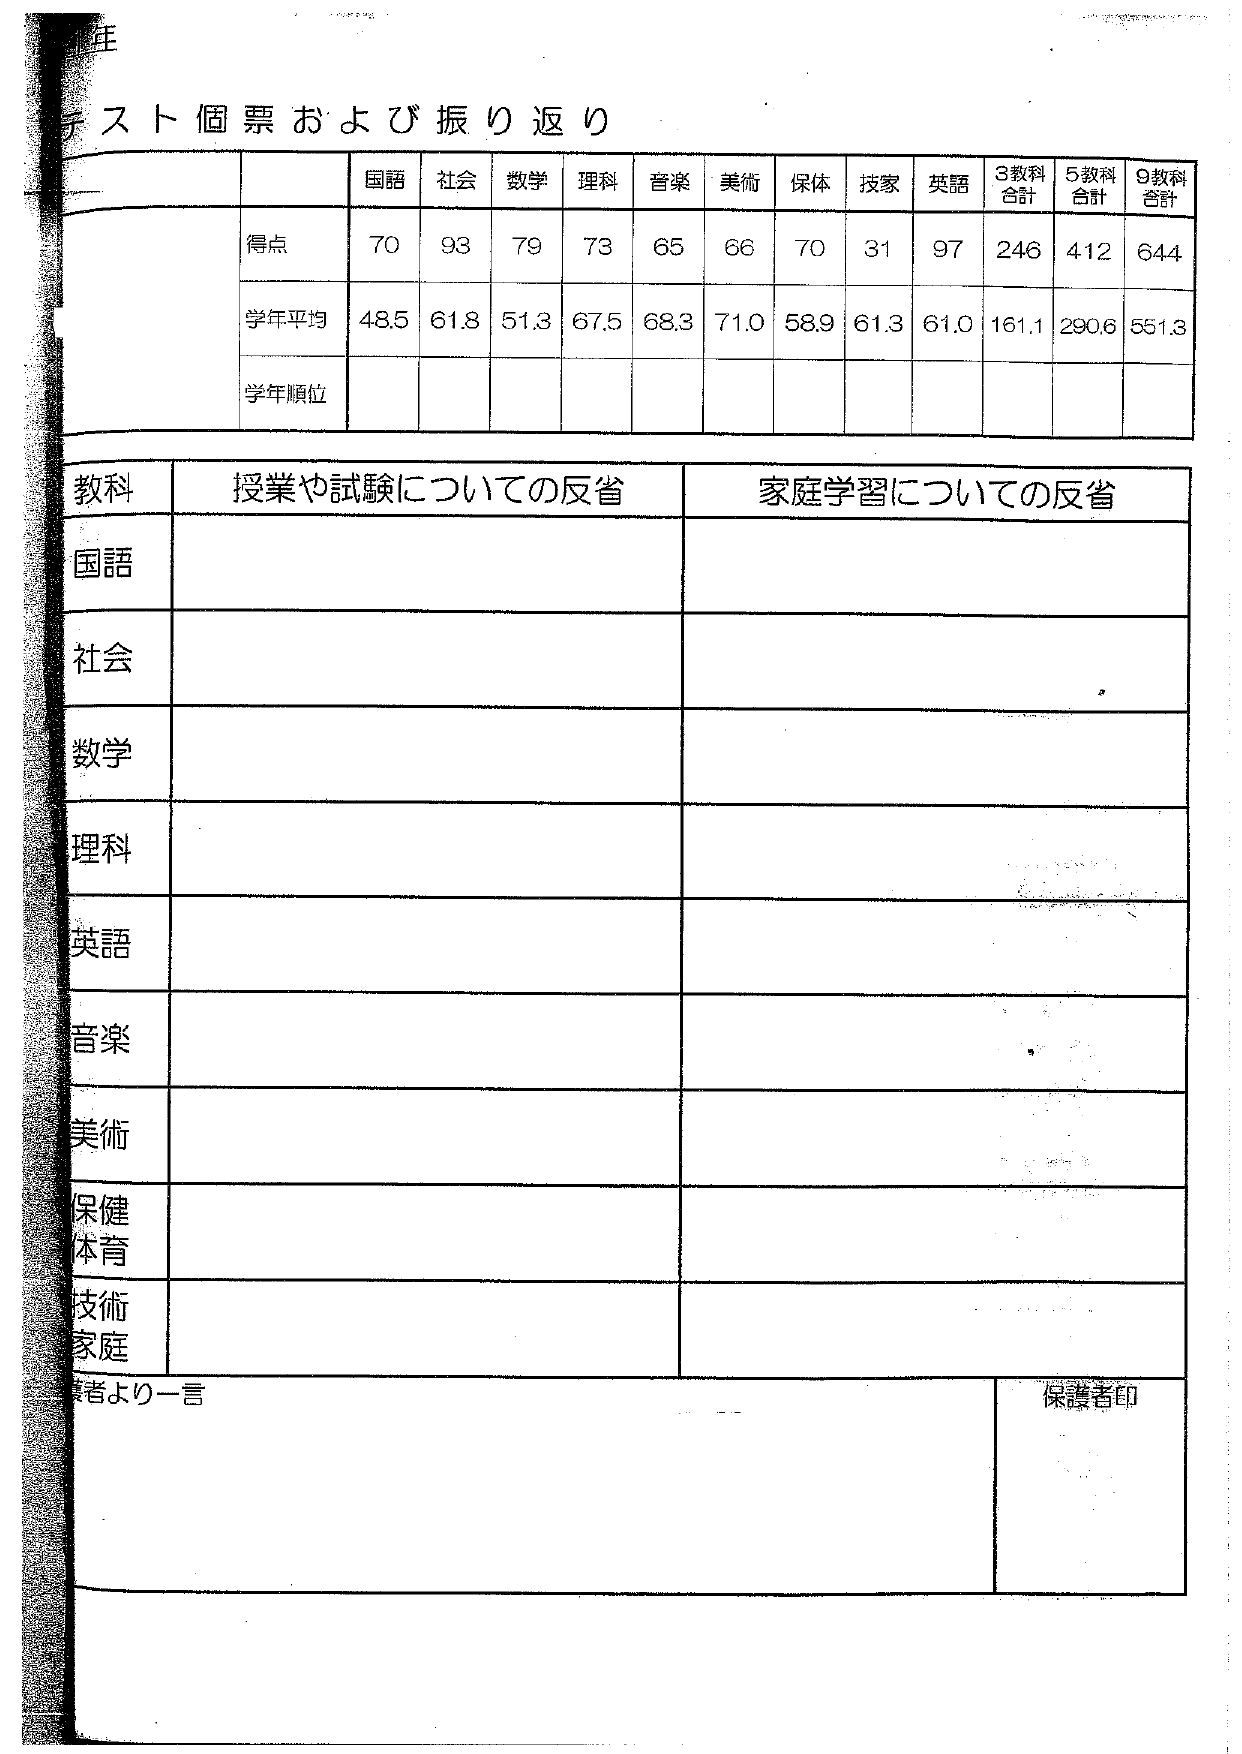 年
テスト個票および振り返り
国語 社会 数学 理科 音楽 美術 保体 技家 英語 3教科合計 5教科合計 9教科合計
得点 70 93 79 73 65 66 70 31 97 246 412 644
学年平均 48.5 61.8 51.3 67.5 68.3 71.0 58.9 61.3 61.0 161.1 290.6 551.3
学年順位
教科 授業や試験についての反省 家庭学習についての反省
国語
社会
数学
理科
英語
音楽
美術
保健
体育
技術
家庭
護者より一言 保護者印